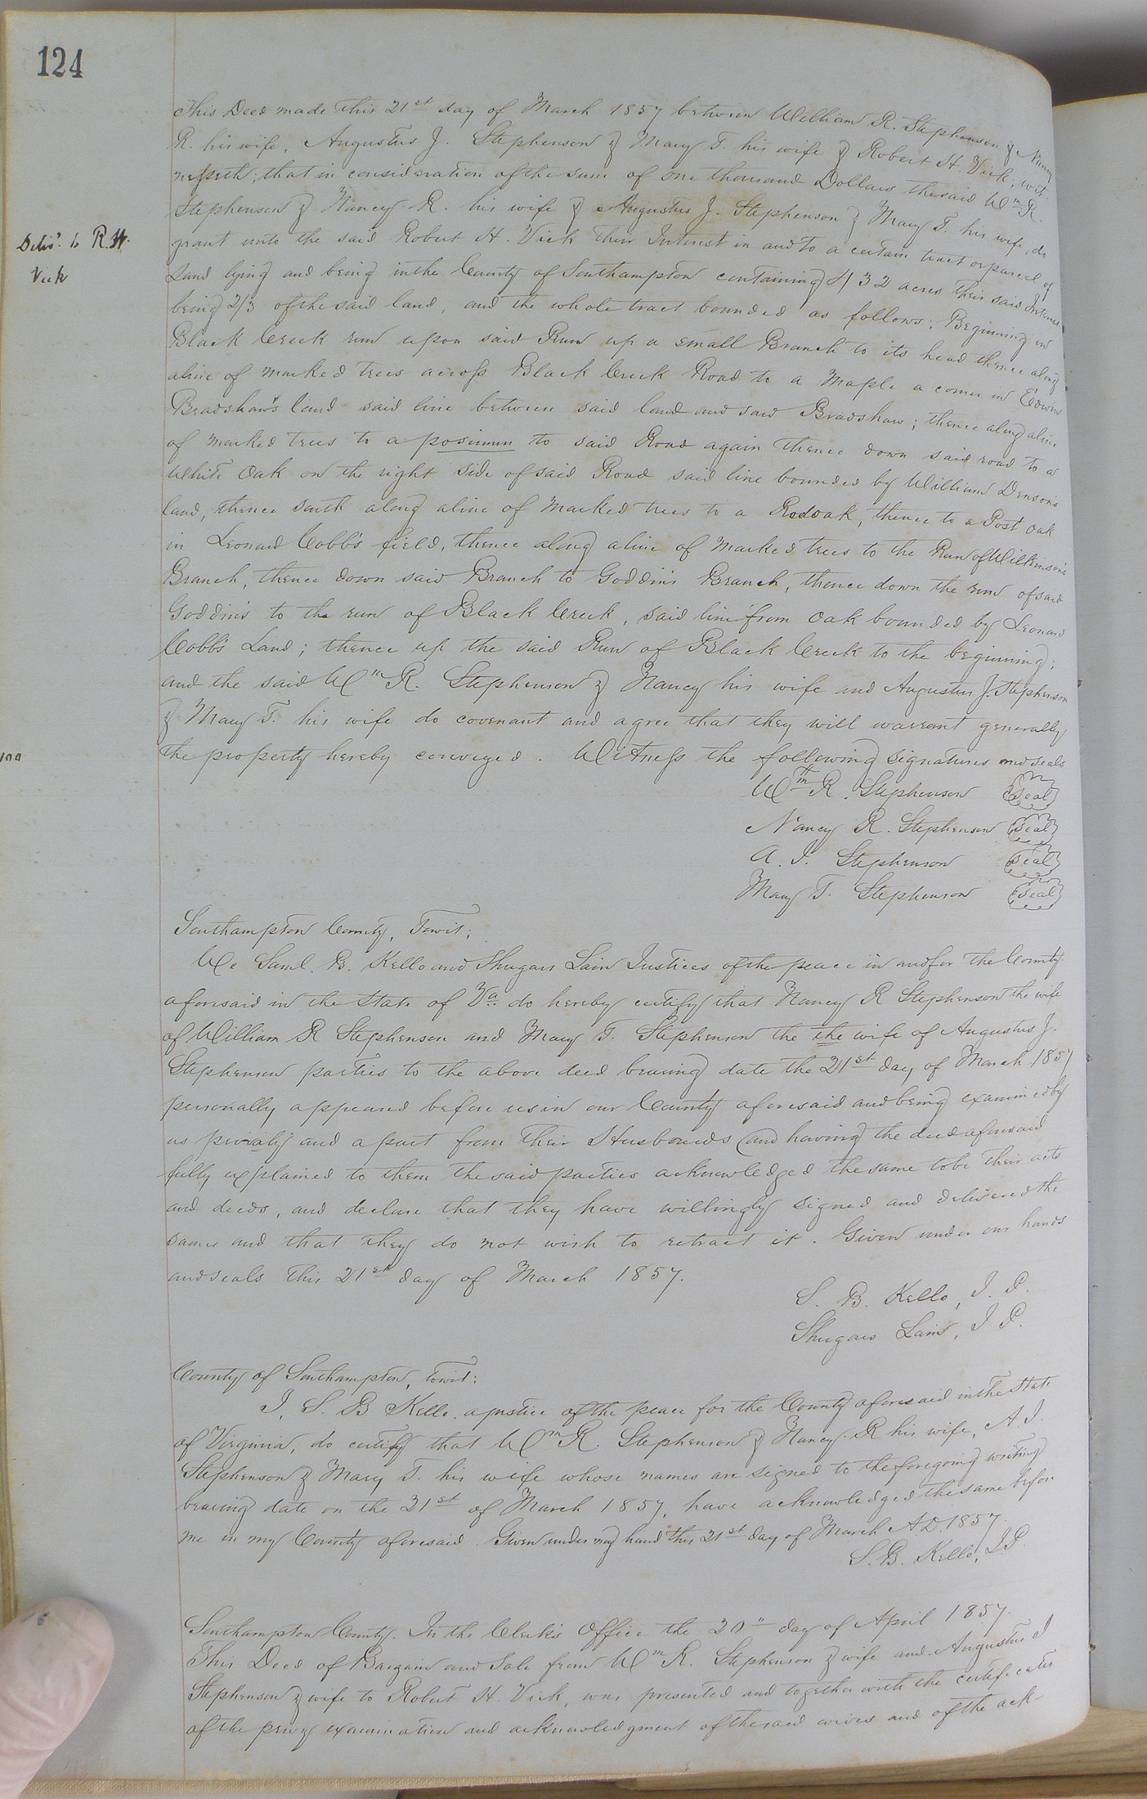 124
This Deed made this 21st day of March 1857 between William R. Stephenson & Nancy
R. his wife, Augustus J. Stephenson & Mary T. his wife & Robert H. Vick, wit
nesseth; that in consideration of the sum of one thousand Dollars the said Wm R.
Stephenson & Nancy R. his wife & Augustus J. Stephenson & Mary T. his wife, do
Deliv'd. to R. H.
Vick
grant unto the said Robert H. Vick their Interest in and to a certain tract or parcel of
Land lying and being in the County of Southampton containing 432 acres their said Interest
being 2/3 of the said land, and the whole tract bounded as follows: Beginning in
Black Creek run upon said Run up a small Branch to its head thence along
a line of marked trees across Black Creek Road to a Maple a corner in Edwin
Bradshaw's land said line between said land and said Bradshaw; thence along a line
of marked trees to a posimun to said Road again thence down said road to a
White Oak on the right side of said Road said line bounded by William Denson's
land, thence south along a line of marked trees to a Redoak, thence to a Post oak
in Leonard Cobb's field, thence along a line of marked trees to the Run of Wilkinson's
Branch, thence down said Branch to Goddin's Branch, thence down the run of said
Goddin's to the run of Black Creek, said line from oak bounded by Leonard
Cobb's Land; thence up the said Run of Black Creek to the beginning;
and the said Wm R. Stephenson & Nancy his wife and Augustus J. Stephenson
& Mary T. his wife do covenant and agree that they will warrant generally
the property hereby conveyed. Witness the following signatures and seals
Wm R. Stephenson Seal
Nancy R. Stephenson Seal
A. J. Stephenson Seal
Mary T. Stephenson Seal
Southampton County, Towit;
We Saml. B. Kello and Shugars Lain Justices of the peace in and for the County
aforesaid in the State of Va do hereby certify that Nancy R Stephenson the wife
of William R Stephenson and Mary T. Stephenson the the wife of Augustus J.
Stephenson parties to the above deed bearing date the 21st day of March 1857
personally appeared before us in our County aforesaid and being examined by
us privately and apart from their Husbands and having the deed aforesaid
fully explained to them the said parties acknowledged the same to be their acts
and deeds, and declare that they have willingly signed and delivered the
same and that they do not wish to retract it. Given under our hands
and seals this 21st day of March 1857.
S. B. Kello, J. P.
Shugars Lain, J P.
County of Southampton, towit:
I, S. B Kello, a justice of the peace for the County aforesaid in the State
of Virginia, do certify that Wm R Stephenson & Nancy R his wife, A. J.
Stephenson & Mary T. his wife whose names are signed to the foregoing writing
bearing date on the 21st of March 1857, have acknowledged the same before
me in my County aforesaid. Given under my hand this 21st day of March A.D. 1857.
S. B. Kello, J.P.
Southampton County. In the Clerk's Office the 20" day of April 1857.
This Deed of Bargain and Sale from Wm R. Stephenson & wife and Augustus J
Stephenson & wife to Robert H. Vick, was presented and together with the certificates
of the privy examination and acknowledgment of the said wives and of the ack-